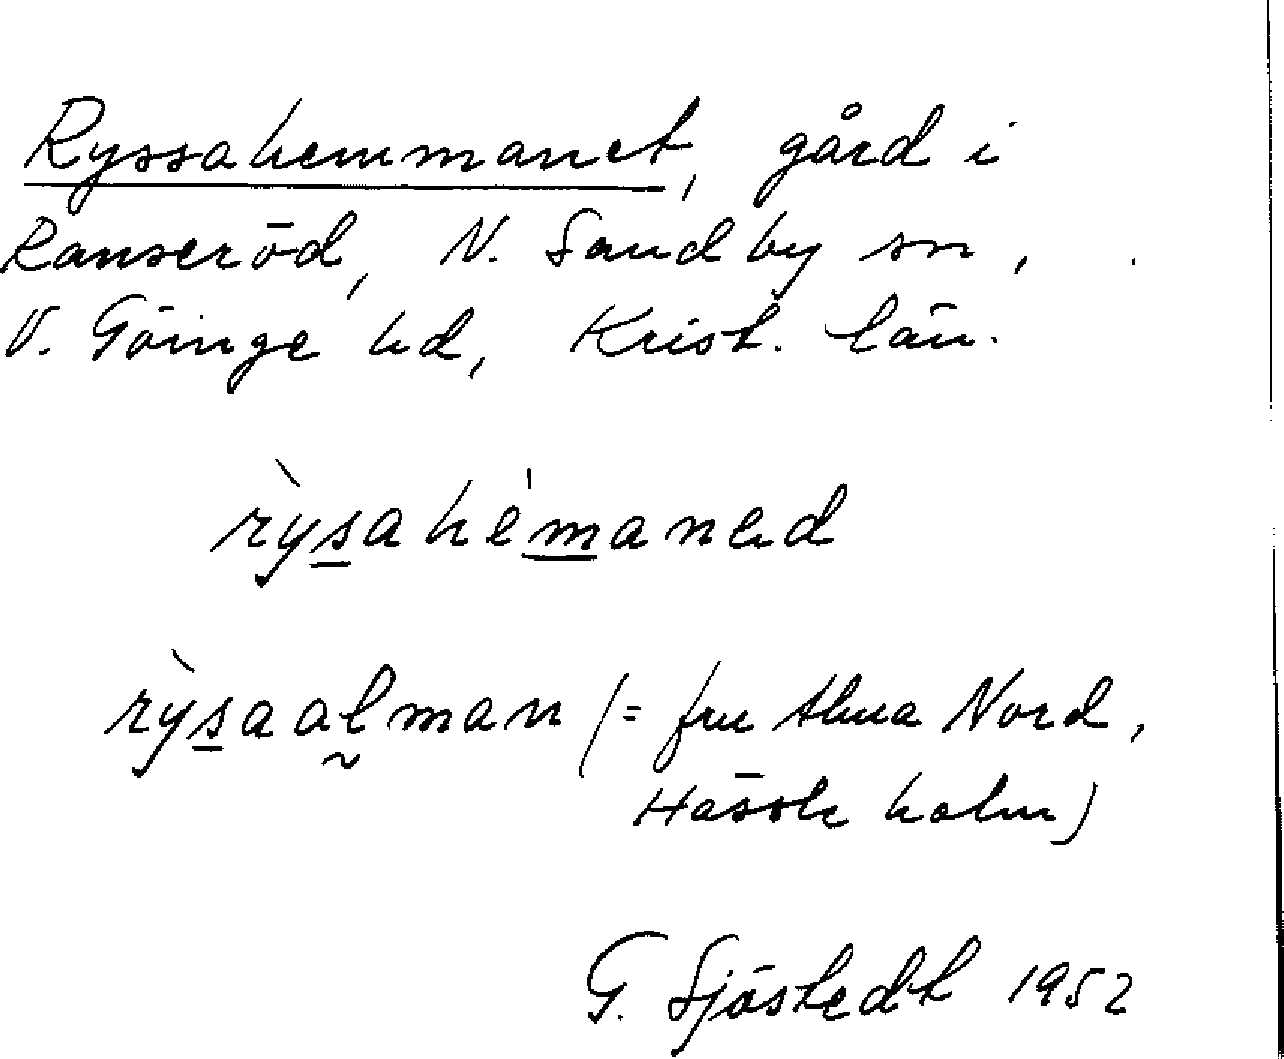 Ryssahemmanet, gård i
Ranseröd, N. Sandby sn,
V. Göinge hd, Krist. län.
rỳsahémanəd
rỳsaalman (= fru Alma Nord,
Hässleholm)
G. Sjöstedt 1952